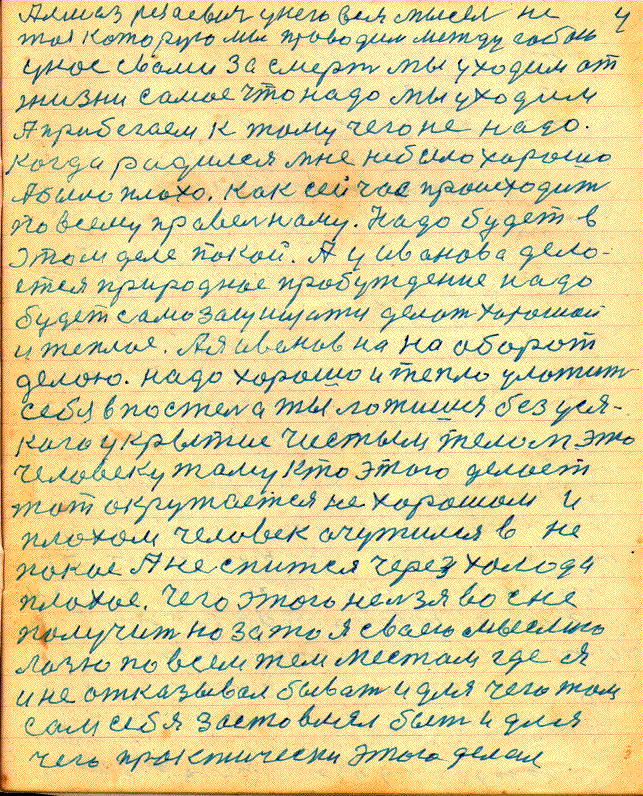 Алмаз резаевич у него вся мысел не 4
тая которую мы проводим между собою
у нас своми за смерт мы уходим от
жизни самое что надо мы уходим
А прибегаем к тому чего не надо.
Когда радился мне небыло хорошо
А было плохо. Как сейчас происходит
по всему правелному. Надо будет в
этом деле покой. А у иванова дело-
ется природное пробуждение надо
будет само защищати делат хорошой
и теплое. А я иванов на на оборот
делою. надо хорошо и тепло уложит
себя в постел а ты ложишся без уся-
кого укрытие чистым телом это
человеку тому кто этого делает
тот окружается не хорошом и
плохом человек очутился в не
покое А не спится через холода
плохое. Чего этого нелзя во сне
получит но зато я своею мыслию
лазию по всем тем местам где я
и не отказывал быват и для чего там
сам себя заставлял быт и для
чего практически этого делал